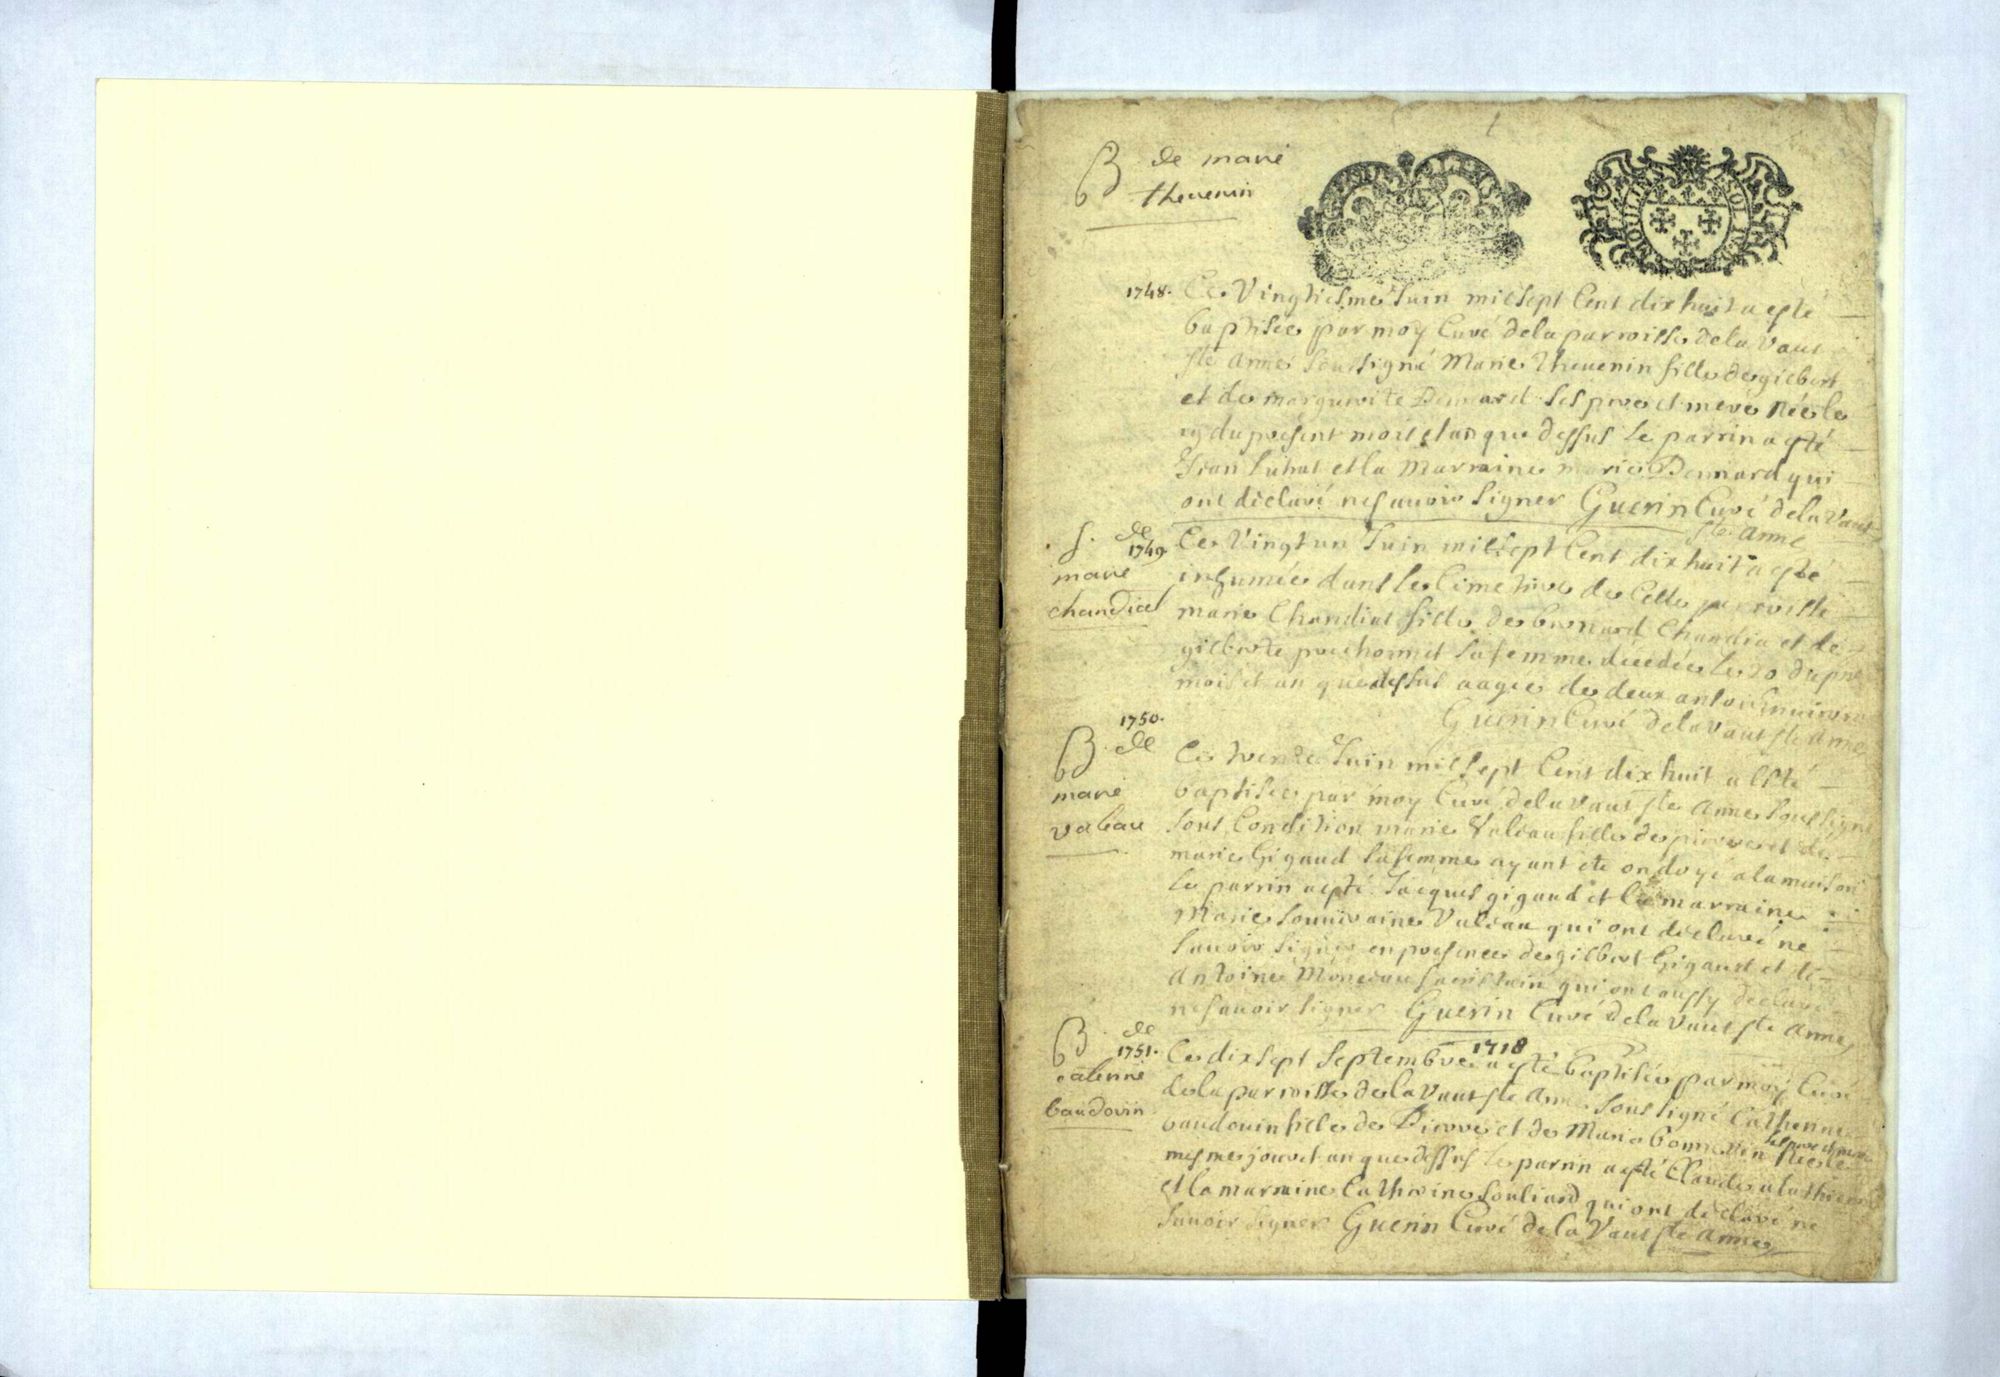 B de marie
thevenin
MOULINS
SOLS
1748. Ce Vingtiesme Juin mil sept Cent dix huit a esté
baptisée par moy Curé de la parroisse de la Vaut
ste Anne soussigné Marie Thevenin fille de gilbert
et de marguerite Demard ses pere et mere Née le
du present mois et an que dessus le parrin a esté
Jean et la Marraine marie Demard qui
ont déclaré ne savoir signer Guerin Curé de la Vaut
ste Anne
S. de
1749.
marie
chandiat
Ce Vingt un Juin mil sept Cent dix huit a esté
inhumée dans le Cimetiere de Cette parroisse
marie Chandiat fille de bernard Chandia et de
gilberte sa femme décédée le 20 du pnt
mois et an que dessus aagée de deux ans ou Environ
Guerin Curé de la Vaut ste Anne
1750.
B de
marie
valeau
Ce trente Juin mil sept Cent dix huit a esté
baptisée par moy Curé de la Vaut ste Anne soussigné
sous Condition marie Valeau fille de pierre et de
marie Gigaud sa femme ayant ete ondoyé a la maison
le parrin a esté Jacques gigaud et la marraine
Marie Souuiraine Valeau qui ont déclaré ne
savoir signer en presence de gilbert Gigaud et de
Antoine Moneau sacristain qui ont aussy declaré
ne savoir signer Guerin Curé de la Vaut ste Anne
B de
1751.
caterine
baudovin
1718
Ce dix sept Septembre a esté baptisée par moy Curé
de la parroisse de la Vaut ste Anne soussigné Catherine
baudouin fille de Pierre et de Marie bonnevin ses pere et mere Née le
mesme jour et an que dessus le parrin a esté Claude
et la marraine Catherine Souliard qui ont déclaré ne
savoir signer Guerin Curé de la Vaut ste Anne